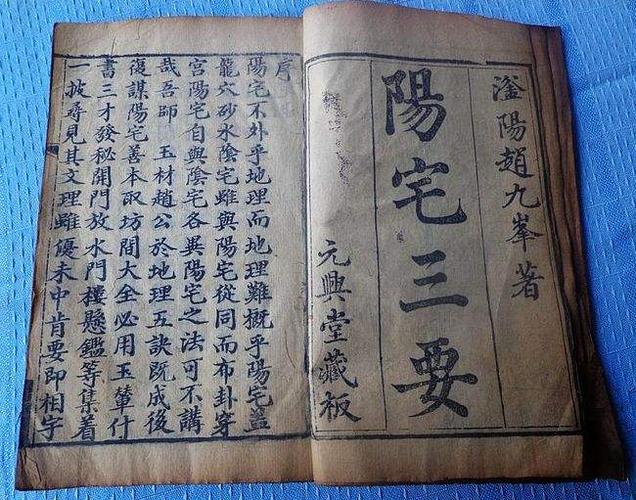 滏陽趙九峯著
陽宅三要
元興堂藏板
序
陽宅不外乎地理而地理難概乎陽宅盖
龍穴砂水陰宅雖與陽宅從同而布卦穿
宮陽宅自與陰宅各異陽宅之法可不講
哉吾師 玉材趙公於地理五訣既成後
復謀陽宅善本取坊間大全必用玉輦什
書三才發秘開門放水門樓懸鑑等集着
一披尋見其文理雖優未中肯要即相字